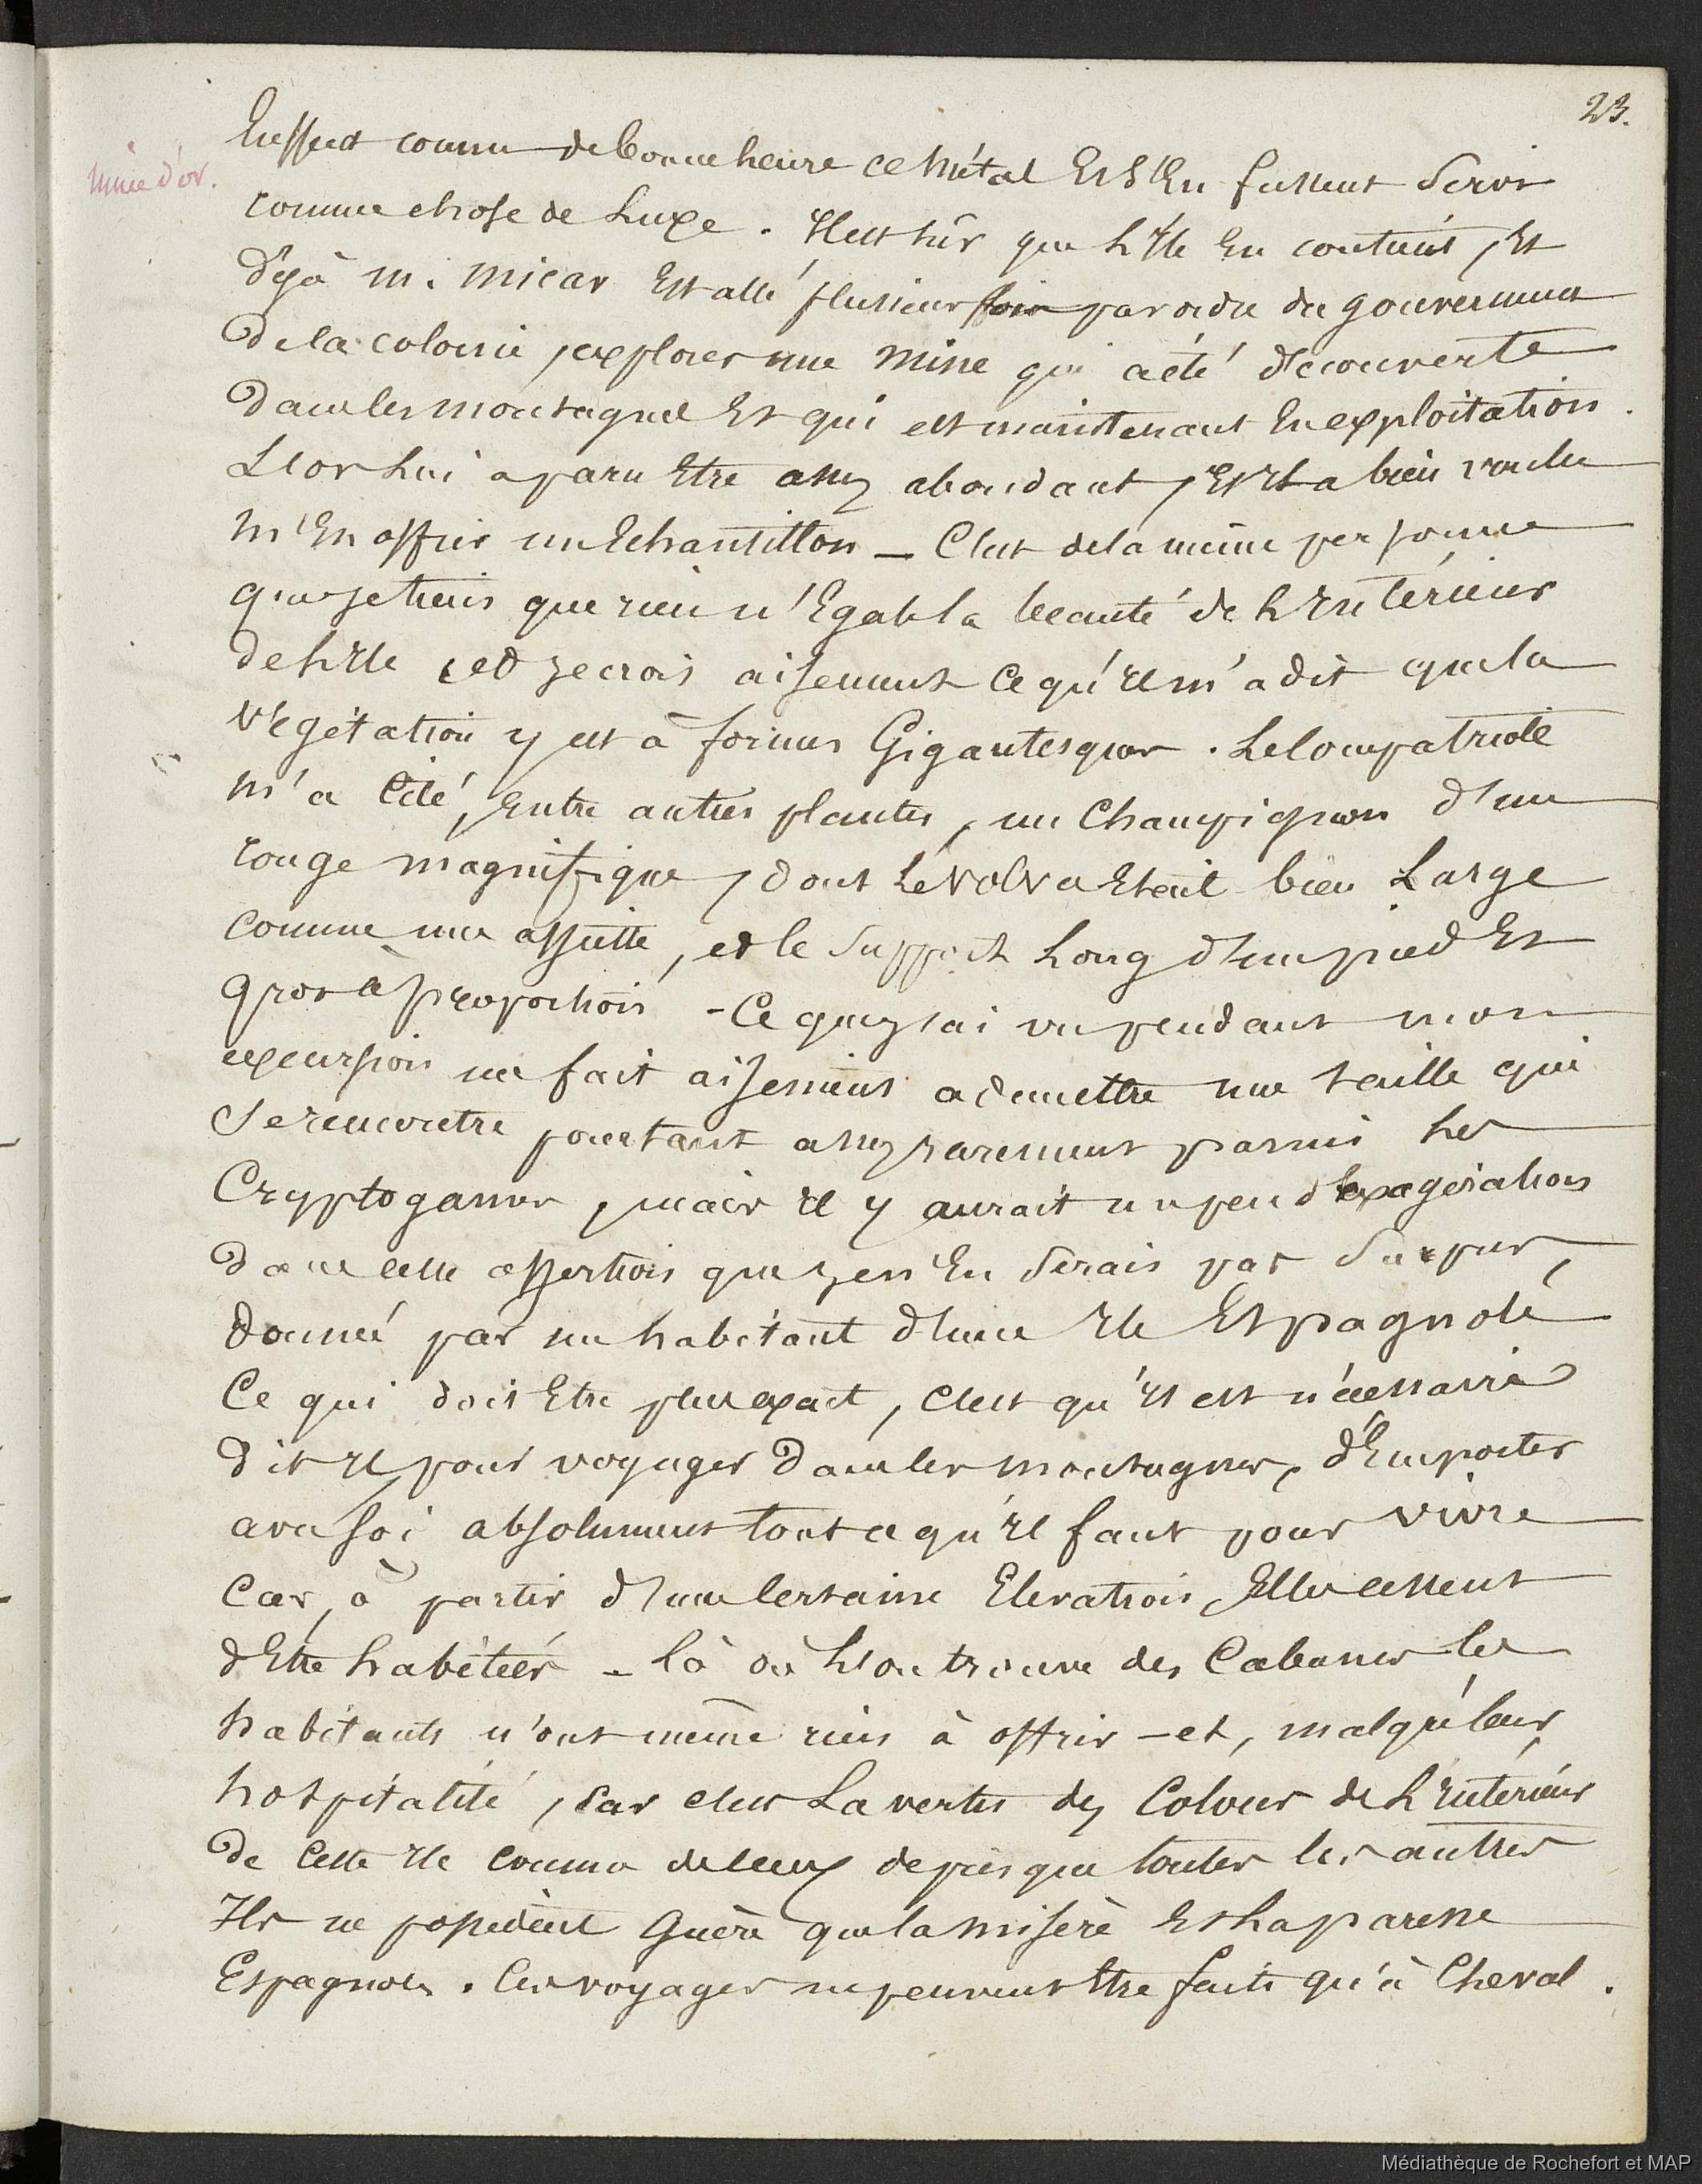 23.
mine d'or.
Eussent connu de bonne heure ce métal Et s'En fussent servis
comme chose de Luxe. Il est sûr que L'Ile En contient, Et
déjà m. Micar Est allé plusieurs fois par ordre du gouvernement
de la colonie, explorer une mine qui a été découverte
dans les montagnes Et qui est maintenant En exploitation.
L'or Lui a paru Etre assez abondant, Et Il a bien voulu
m'En offrir un Echantillon — C'est de la même personne
que je tiens que rien n'Egale la beauté de L'Intérieur
de L'Ile, et je crois aisement ce qu'Il m'a dit que la
végétation y est à formes Gigantesques. Le Compatriote
m'a Cité, Entre autres plantes, un Champignon d'un
rouge magnifique, dont Le volva Etait bien Large
comme une assiette, et le support Long d'un pied Et
gros à proportion - Ce que j'ai vu pendant mon
excursion me fait aisement admettre une taille qui
se rencontre pourtant assez rarement parmi Les
Cryptogames, mais Il y aurait un peu d'Exagération
dans cette assertion que je n'En serais pas surpris,
donnée par un habitant d'une Ile Espagnole
Ce qui doit Etre plus exact, c'est qu'Il est nécessaire
dit Il, pour voyager dans les montagnes, d'Emporter
avec soi absolument tout ce qu'Il faut pour vivre
Car, à partir d'une Certaine Elevation, Elles cessent
d'Etre habitées - là où L'on trouve des Cabanes les
habitants n'ont même rien à offrir - et, malgré leur
hospitalité, car c'est La vertu des Colons de L'Intérieur
de Cette Ile comme de ceux de presque toutes les autres
Ils ne possèdent Guère que la misère Et La paresse
Espagnoles. Ces voyages ne peuvent Etre faits qu'à Cheval.
Médiathèque de Rochefort et MAP